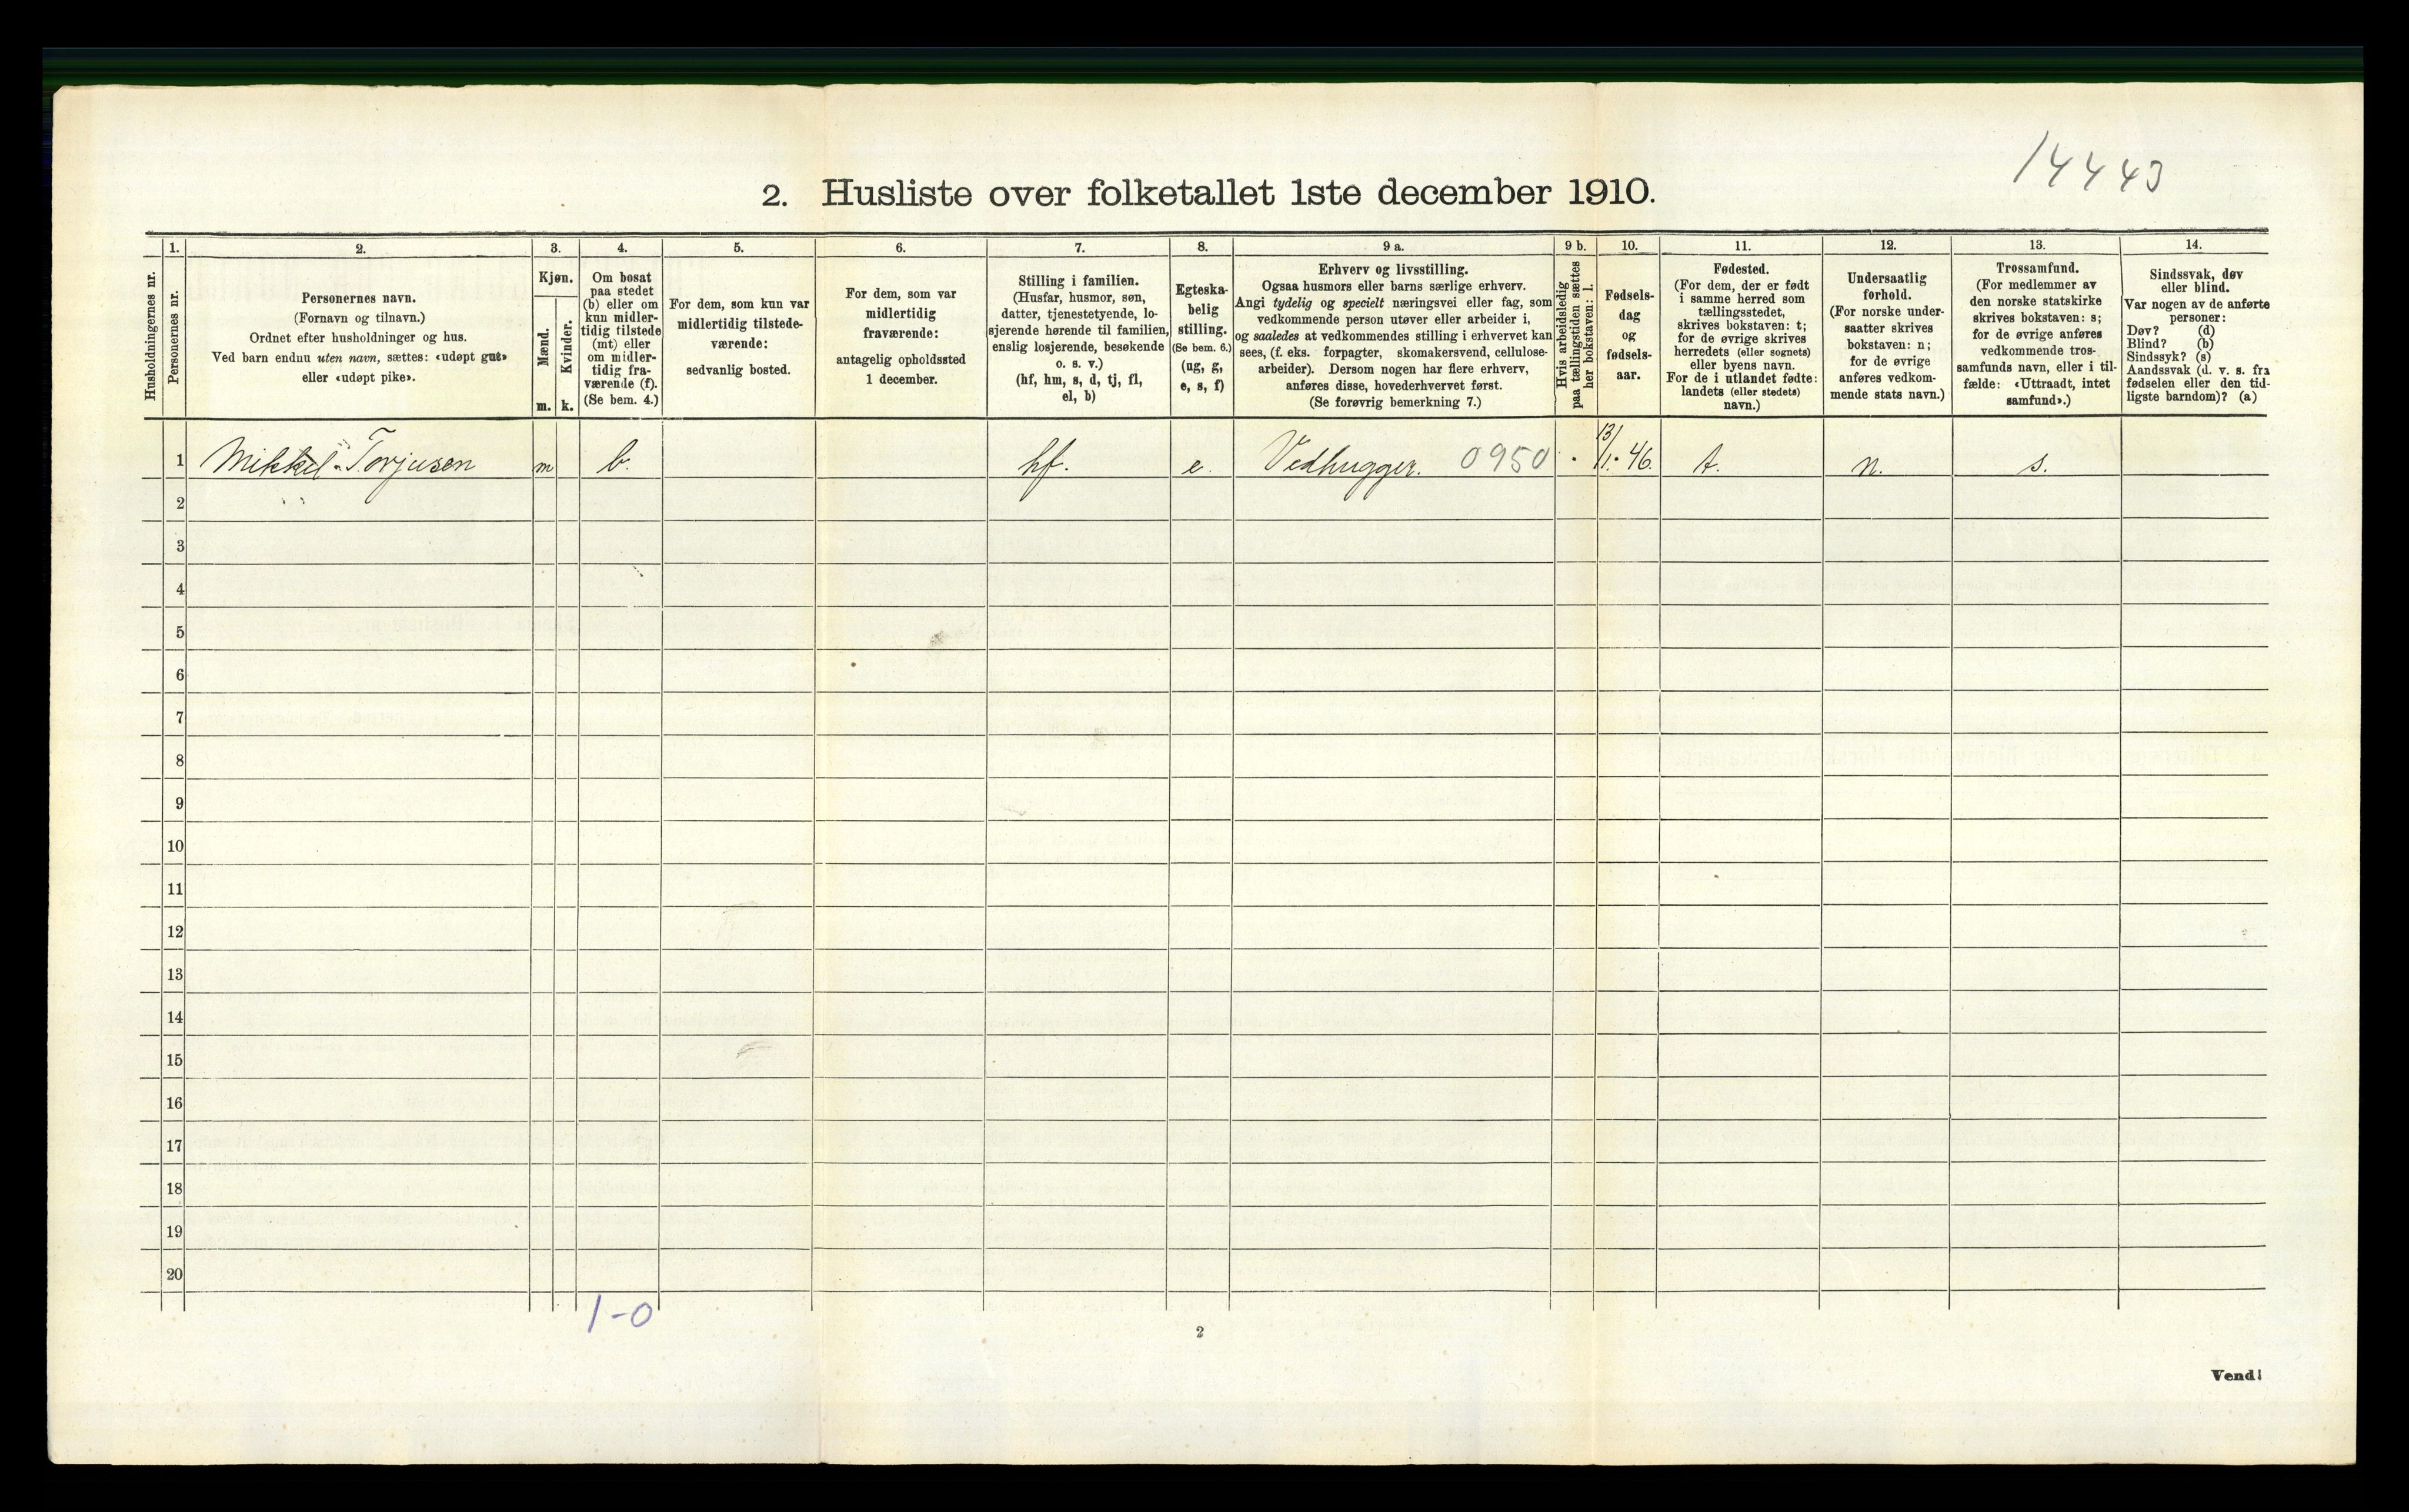 14443
2. Husliste over folketallet 1ste december 1910.
Husholdningernes nr.
1.
Personernes nr.
2.
Personernes navn.
(Fornavn og tilnavn.)
Ordnet efter husholdninger og hus.
Ved barn endnu uten navn, sættes: «udøpt gut»
eller «udøpt pike».
3.
Kjøn.
Mænd.
Kvinder.
m. k.
4.
Om bosat
paa stedet
(b) eller om
kun midler-
tidig tilstede
(mt) eller
om midler-
tidig fra-
værende (f).
(Se bem. 4.)
5.
For dem, som kun var
midlertidig tilstede-
værende:
sedvanlig bosted.
6.
For dem, som var
midlertidig
fraværende:
antagelig opholdssted
1 december.
7.
Stilling i familien.
(Husfar, husmor, søn,
datter, tjenestetyende, lo-
sjerende hørende til familien,
enslig losjerende, besøkende
o. s. v.)
(hf, hm, s, d, tj, fl,
el, b)
8.
Egteska-
belig
stilling.
(Se bem. 6.)
(ug, g,
e, s, f)
9 a.
Erhverv og livsstilling.
Ogsaa husmors eller barns særlige erhverv.
Angi tydelig og specielt næringsvei eller fag, som
vedkommende person utøver eller arbeider i,
og saaledes at vedkommendes stilling i erhvervet kan
sees, (f. eks. forpagter, skomakersvend, cellulose-
arbeider). Dersom nogen har flere erhverv,
anføres disse, hovederhvervet først.
(Se forøvrig bemerkning 7.)
9 b.
Hvis arbeidsledig
paa tællingstiden sættes
her bokstaven: l.
10.
Fødsels-
dag
og
fødsels-
aar.
11.
Fødested.
(For dem, der er født
i samme herred som
tællingsstedet,
skrives bokstaven: t;
for de øvrige skrives
herredets (eller sognets)
eller byens navn.
For de i utlandet fødte:
landets (eller stedets)
navn.)
12.
Undersaatlig
forhold.
(For norske under-
saatter skrives
bokstaven: n;
for de øvrige
anføres vedkom-
mende stats navn.)
13.
Trossamfund.
(For medlemmer av
den norske statskirke
skrives bokstaven: s;
for de øvrige anføres
vedkommende tros-
samfunds navn, eller i til-
fælde: «Uttraadt, intet
samfund».)
14.
Sindssvak, døv
eller blind.
Var nogen av de anførte
personer:
Døv? (d)
Blind? (b)
Sindssyk? (s)
Aandssvak (d. v. s. fra
fødselen eller den tid-
ligste barndom)? (a)
1 Mikkel Torjusen m b. hf. e. Vedhugger. 0950 13/11 46. t. n. s.
2
3
4
5
6
7
8
9
10
11
12
13
14
15
16
17
18
19
20
1-0
2
Vend!